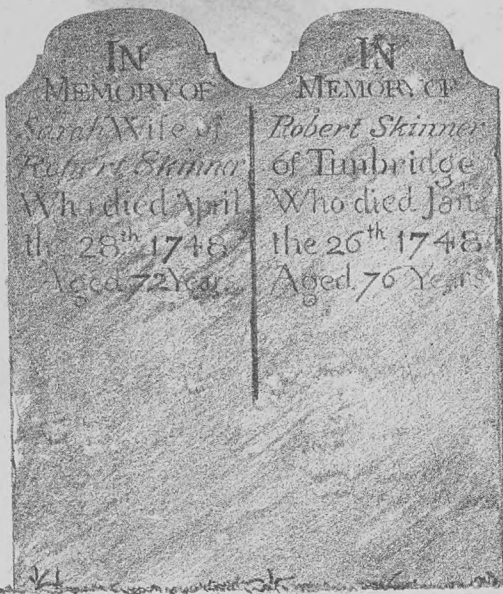 IN
MEMORY OF
Sarah Wife of
Robert Skinner
Who died April
the 28th 1748
Aged 72 Years
IN
MEMORY OF
Robert Skinner
of Tunbridge
Who died Jan
the 26th 1748
Aged 76 Years